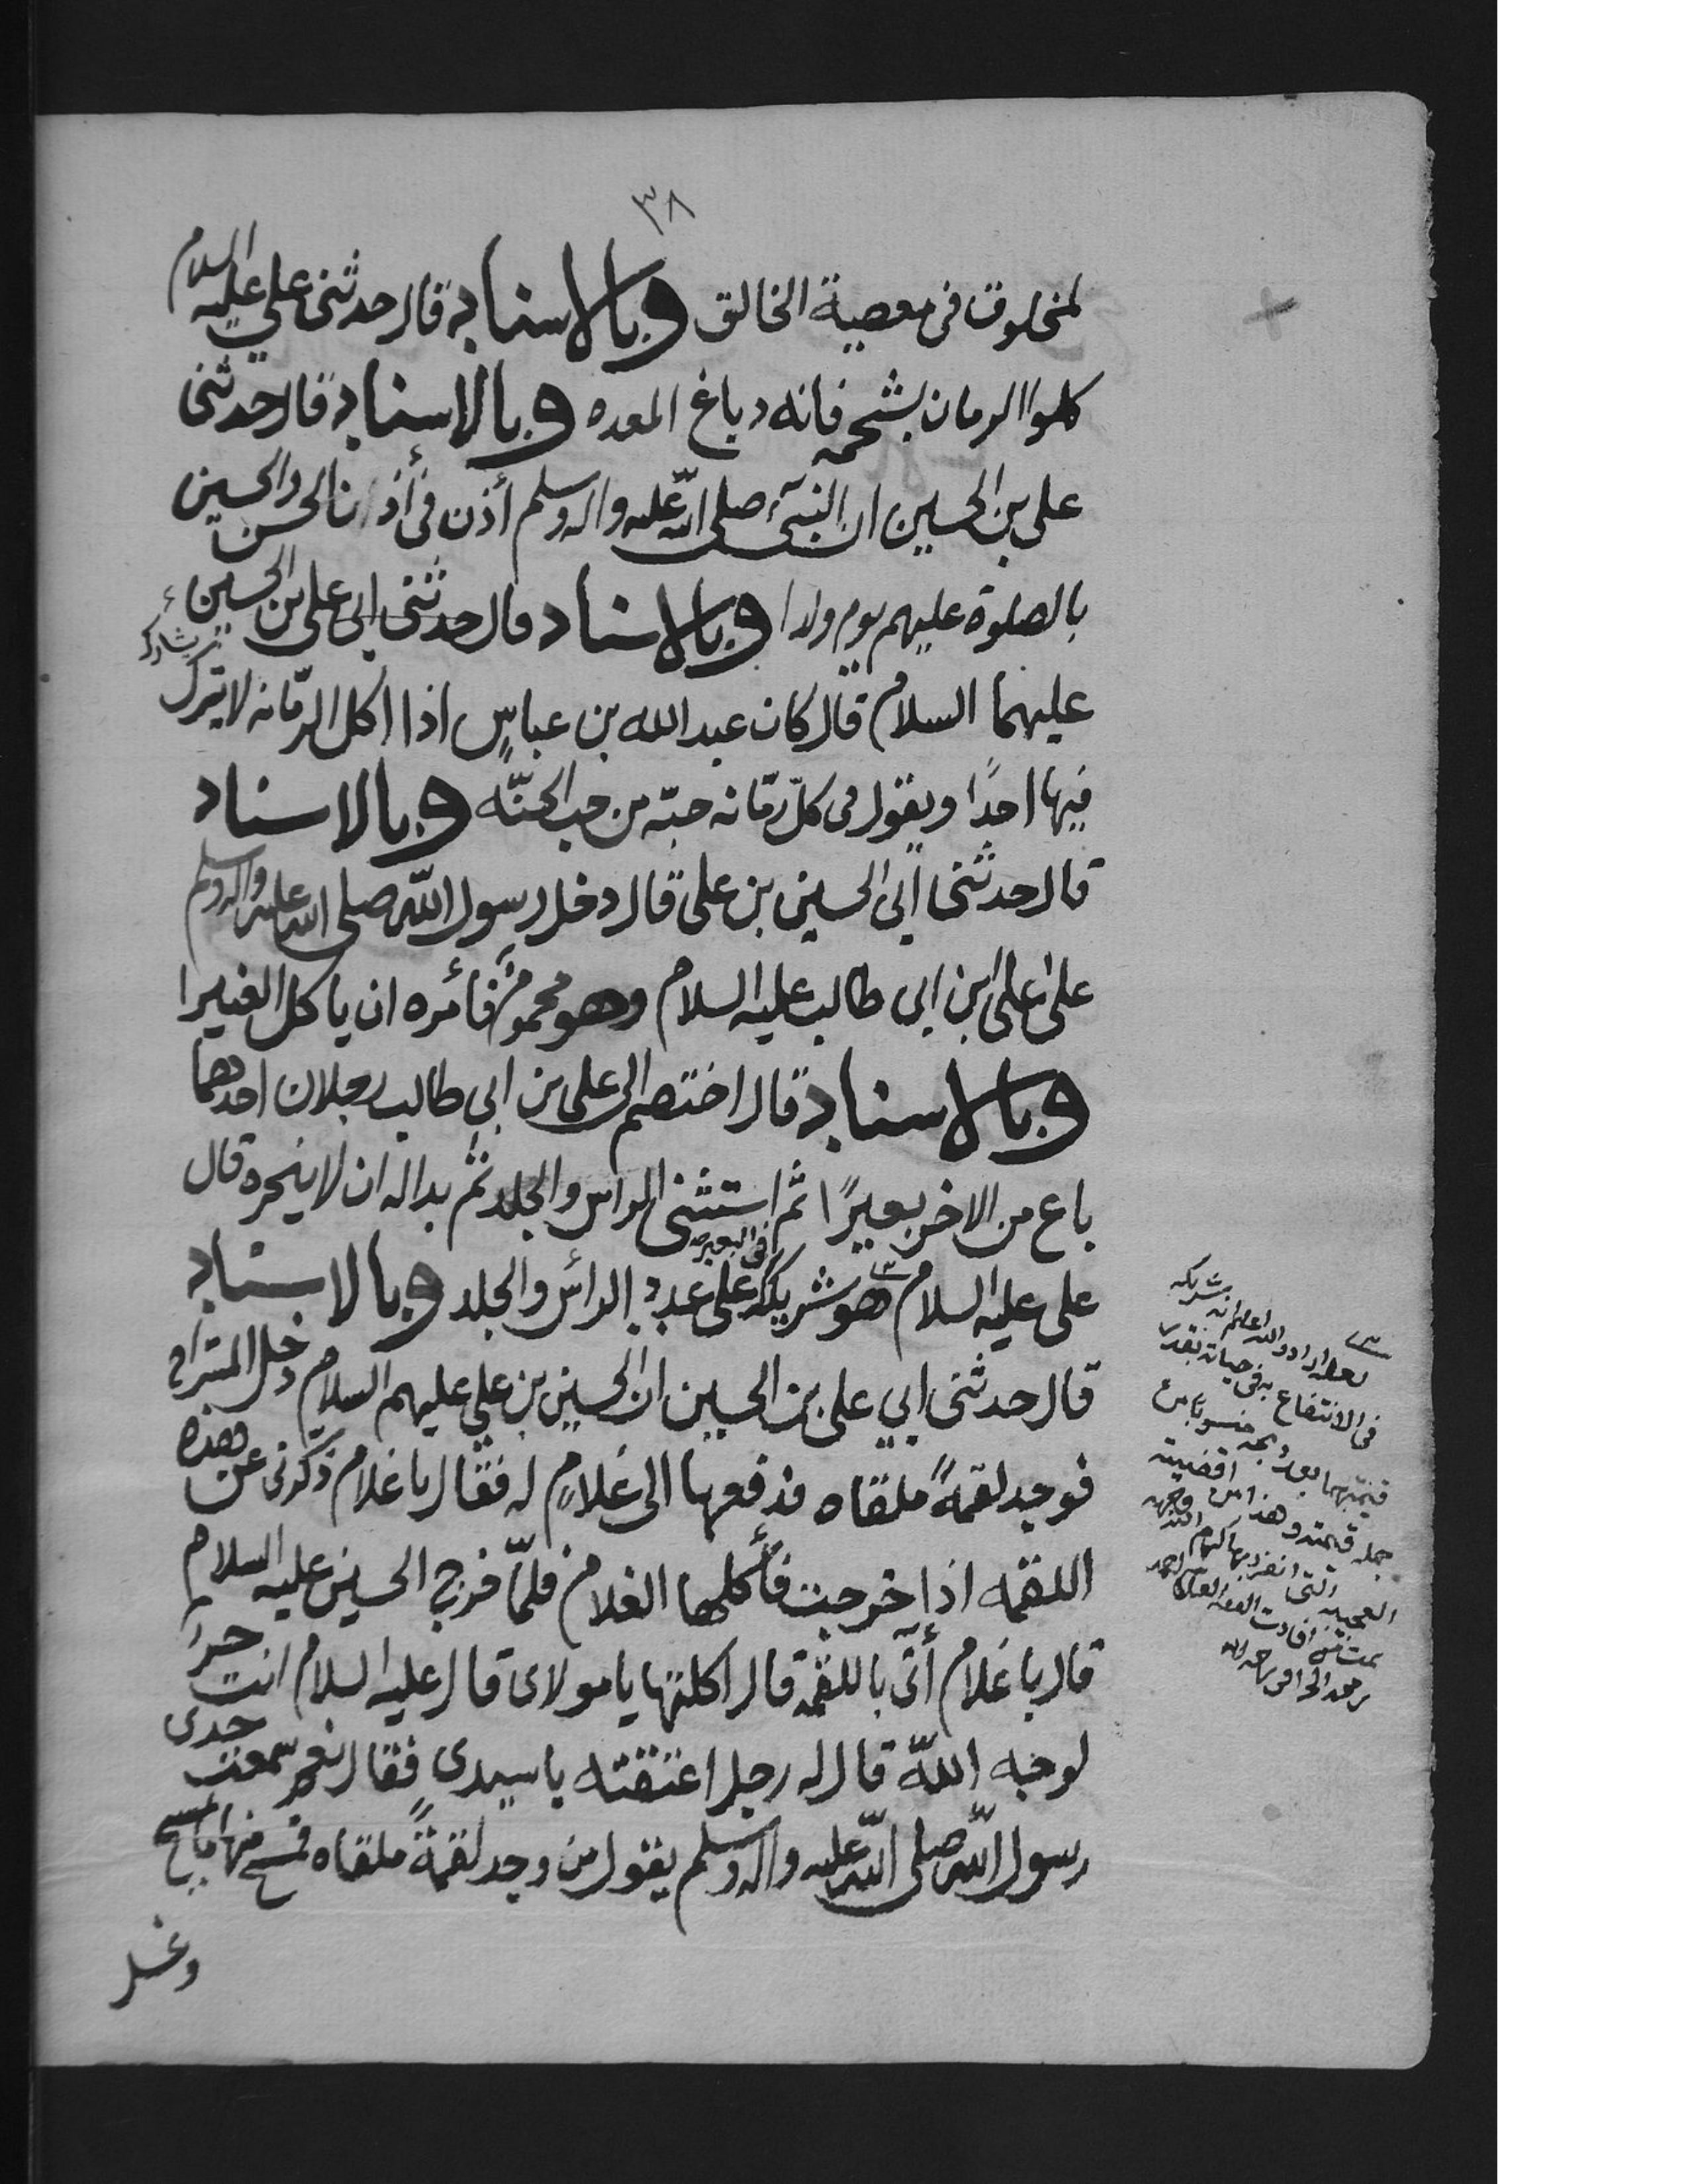 ٣٨
لمخلوق في معصية الخالق وبالاسناد قال حدثني علي عليه السلام
كلوا الرمان بشحمه فانه دباغ المعده وبالاسناد قال حدثني
علي بن الحسين ان النبي صلى الله عليه واله وسلم أذن في أذان الحسن والحسين
بالصلوة عليهم يوم ولدا وبالاسناد قال حدثني ابي علي بن الحسين
عليهما السلام قال كان عبد الله بن عباس اذا اكل الرمّانه لا يترك يشارك
فيها احدًا ويقول في كلّ رمّانه حبّه من حب الجنّه وبالاسناد
قال حدثني ابي الحسين بن علي قال دخل رسول الله صلى الله عليه واله وسلم
على علي ابن ابي طالب عليه السلام وهو محموم فأمره ان ياكل الغبيرا
وبالاسناد قال اختصم الى علي بن ابي طالب رجلان احدهما
باع من الاخر بعيرًا ثم استثنى الراس والجلد ثم بدا له ان لا ينحره قال
علي عليه السلام هو شريكه في البعير على عدد الرأس والجلد وبالاسناد
قال حدثني ابي علي بن الحسين ان الحسين بن علي عليهم السلام دخل المستراح
فوجد لقمةً ملقاه فدفعها الى غلامٍ له فقال يا غلام ذكّرني عن هذه
اللقمه اذا خرجت فأكلها الغلام فلمّا خرج الحسين عليه السلام
قال يا غلام أتى باللقمة قال اكلتها يا مولاى قال عليه السلام انت حرّ
لوجه اللّه قال له رجل اعتقته يا سيدي فقال نعم سمعت جدى
رسول اللّه صلى اللّه عليه واله وسلم يقول من وجد لقمةً ملقاه فمسح منها ما مسح
وغسل
لعله اراد والله اعلم انه شريكه
في الانتفاع به في حياته بقدر
قيمتهما بعد
جمله قيمته وهذا من اقضيته
العجيبه التي انفرد بها كرم الله وجهه